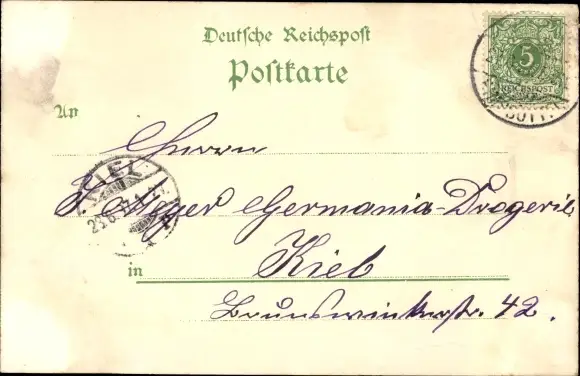 Deutsche Reichspost
Postkarte
5
REICHSPOST
An
Herrn
Meyer Germania-Drogerie
KIEL
in Kiel
Brunswinkerstr. 42.